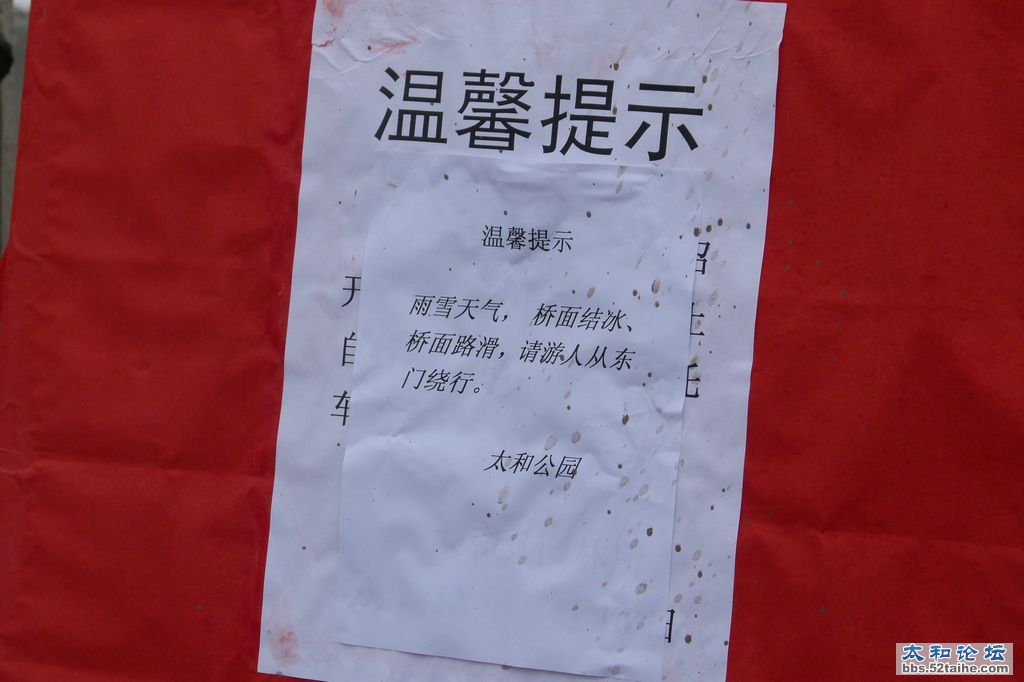 温馨提示
温馨提示
雨雪天气， 桥面结冰、
桥面路滑，请游人从东
门绕行。
太和公园
开
自
车
太和论坛
bbs.52taihe.com